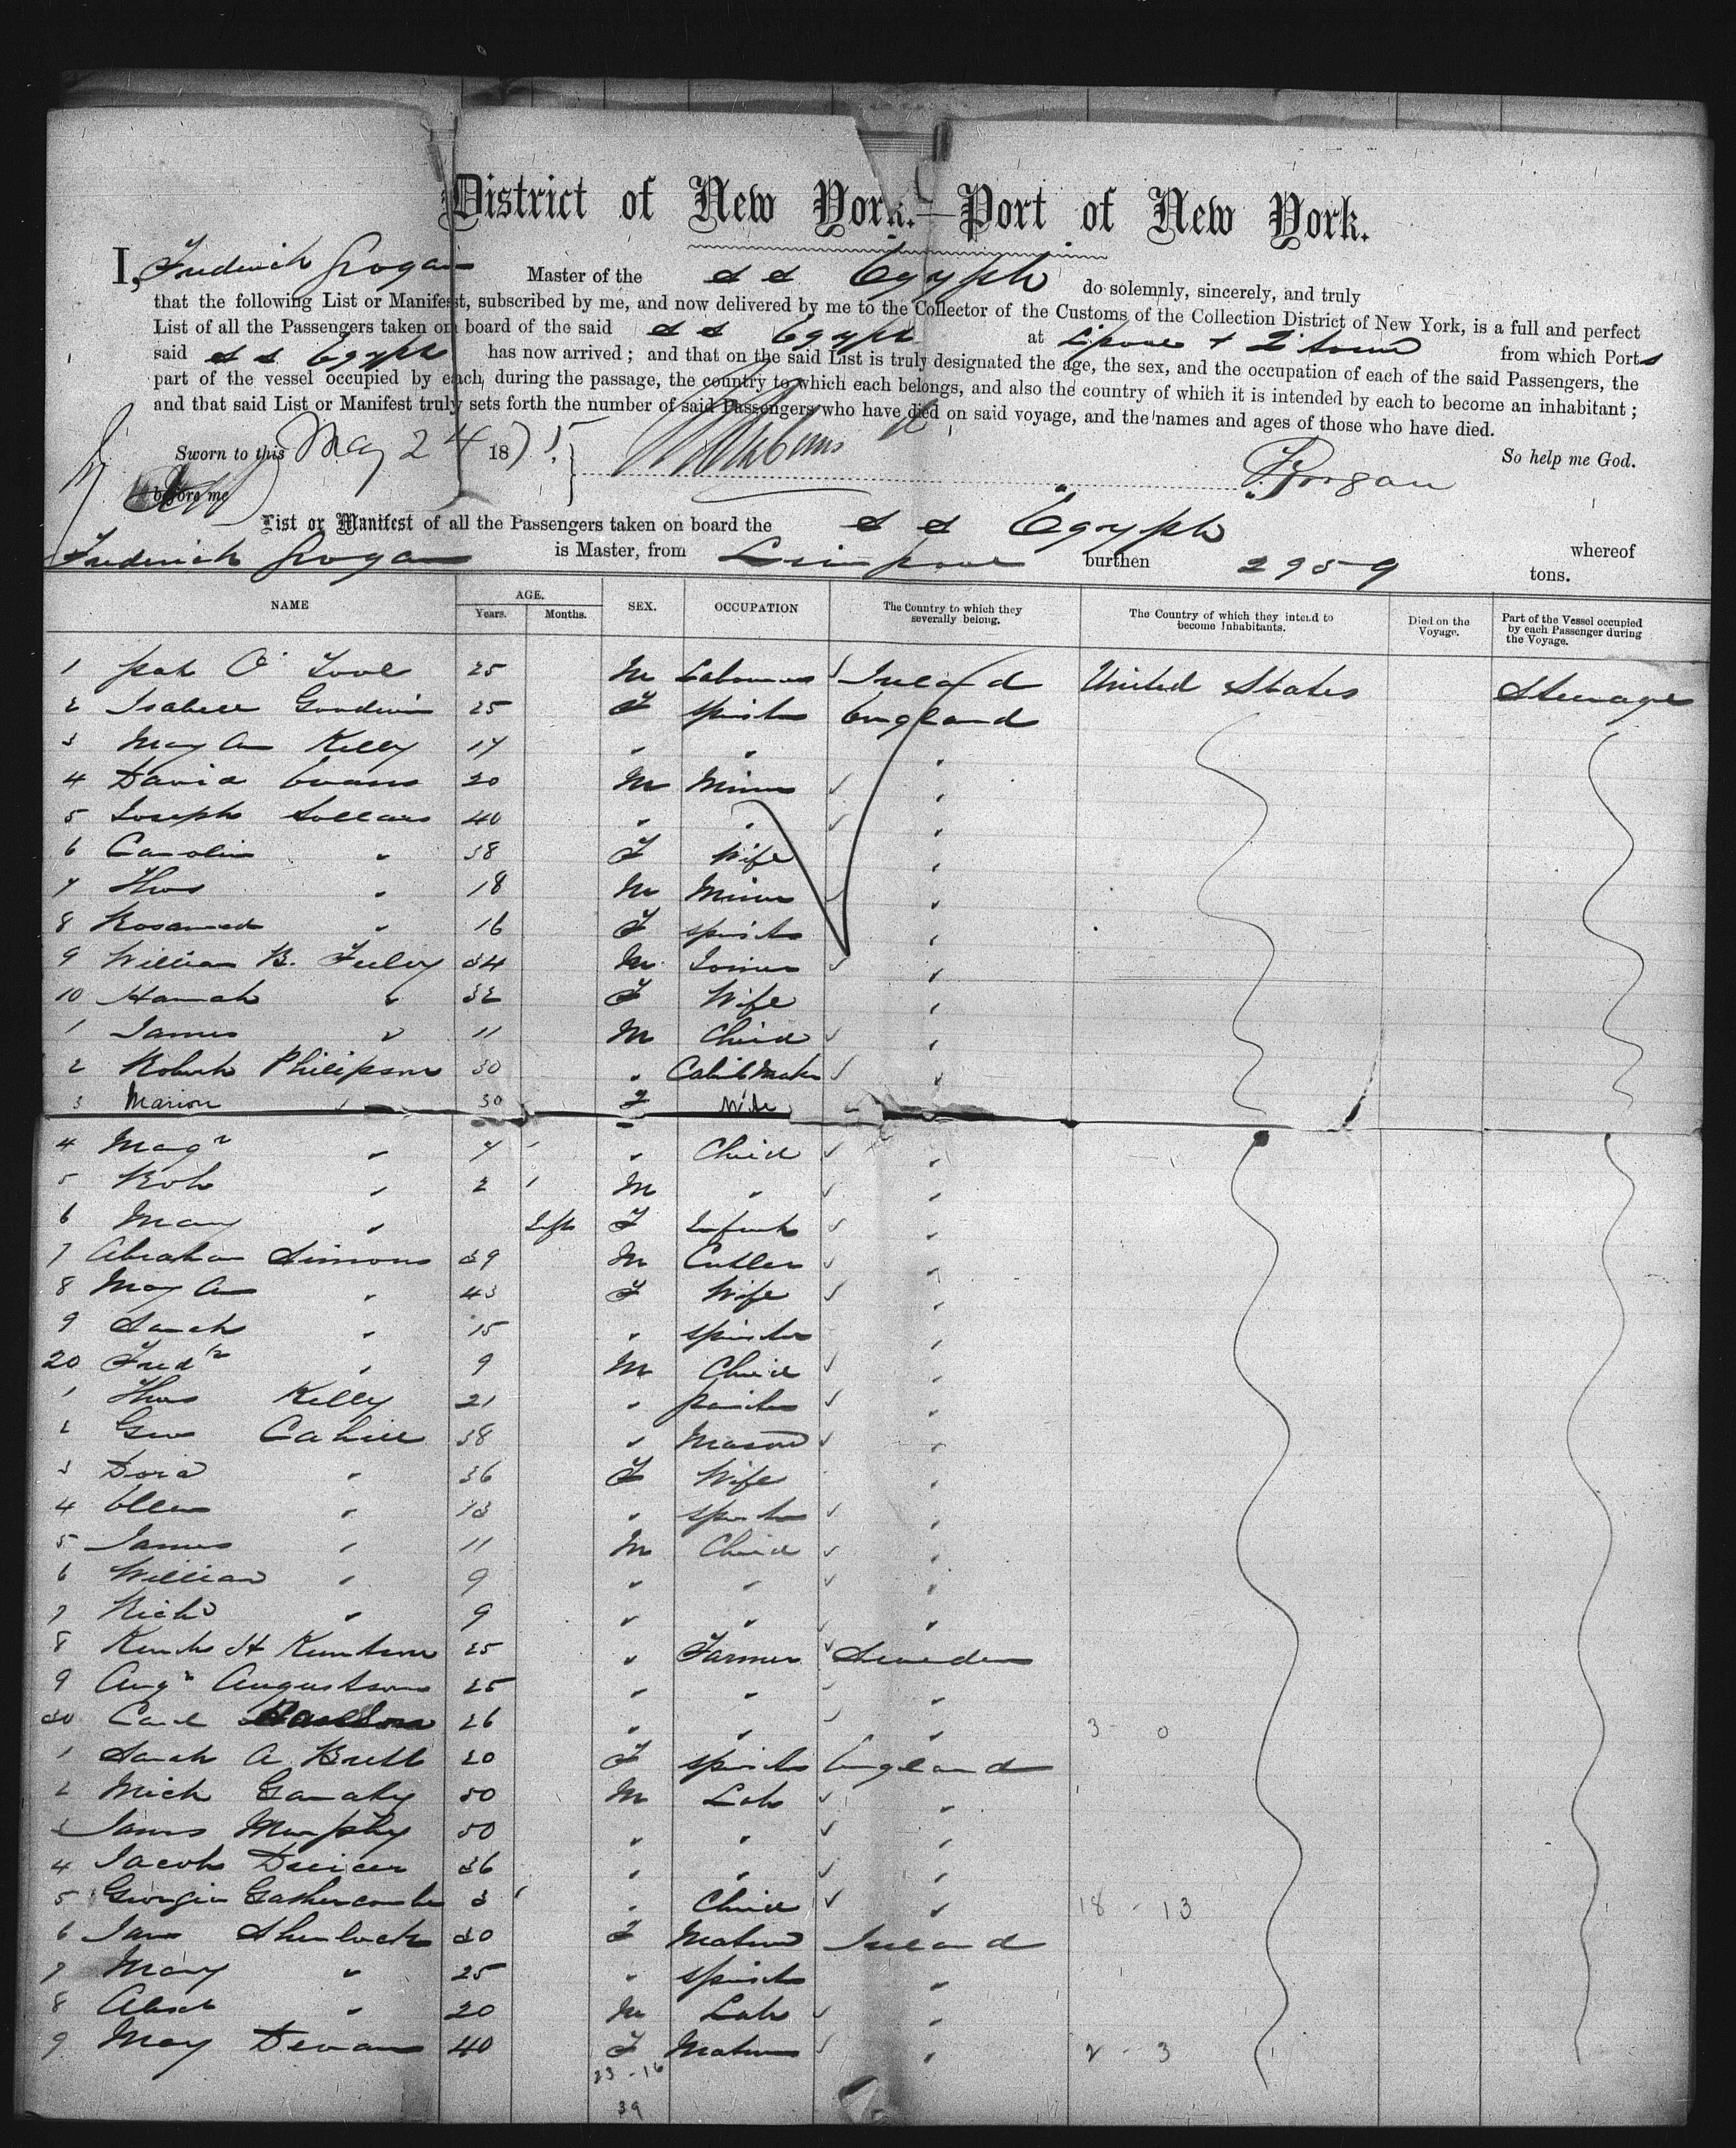 District of New York.—Port of New York.
I, Frederick Grogan Master of the S S Egypt do solemnly, sincerely, and truly
that the following List or Manifest, subscribed by me, and now delivered by me to the Collector of the Customs of the Collection District of New York, is a full and perfect
List of all the Passengers taken on board of the said S S Egypt at Lpool + Qtown from which Ports
said S S Egypt has now arrived; and that on the said List is truly designated the age, the sex, and the occupation of each of the said Passengers, the
part of the vessel occupied by each, during the passage, the country to which each belongs, and also the country of which it is intended by each to become an inhabitant;
and that said List or Manifest truly sets forth the number of said Passengers who have died on said voyage, and the names and ages of those who have died.
Sworn to this May 24 1875 So help me God.
before me F Grogan
List or Manifest of all the Passengers taken on board the S S Egypt whereof
Frederick Grogan is Master, from Liverpool burthen 2959 tons.
NAME AGE. Years. Months. SEX. OCCUPATION The Country to which they severally belong. The Country of which they intend to become Inhabitants. Died on the Voyage. Part of the Vessel occupied by each Passenger during the Voyage.
1 Pat O'Tool 25 M Labourer Ireland United States Steerage
2 Isabell Goodwin 25 F Spinster England
3 Mary An Kelly 17 " " "
4 David Evans 20 M Miner "
5 Joseph Sollars 40 " " "
6 Carolin " 38 F Wife "
7 Thos " 18 M Miner "
8 Rosamond " 16 F Spinster "
9 William B. 34 M Joiner "
10 Hannah " 32 F Wife "
1 James " 11 M Child "
2 Robert Philipson 30 " Cabinetmaker "
3 Marion " 30 F Wife
4 Magt " 7 " Child "
5 Robt " 2 M " "
6 Mary " Inft F Infant "
7 Abraham Simons 39 M Cutler "
8 Mary An " 43 F Wife "
9 Sarah " 15 " Spinster "
20 Fredk " 9 M Child "
1 Thos Kelly 21 " Painter "
2 Geo Cahill 38 " Mason "
3 Dora " 36 F Wife "
4 Ellen " 13 " Spinster "
5 James " 11 M Child "
6 William " 9 " " "
7 Richd " 9 " " "
8 25 " Farmer Sweden
9 Augt Augustson 25 " " "
30 Carl 26 " " " 3 - 0
1 Sarah A Brett 20 F Spinster England
2 Mich 50 M Lab "
3 James Murphy 50 " " "
4 Jacob 36 " " "
5 Georgia 3 " Child " 18 - 13
6 Jane Sherlock 30 F Matron Ireland
7 Mary " 25 " Spinster "
8 " 20 M Lab "
9 Mary Devan 40 F Matron " 2 - 3
23 - 16
39